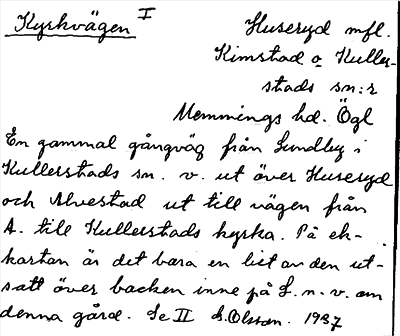 Kyrkvägen I
Huseryd mfl.
Kimstad o Kuller-
stads sn:r
Memmings hd. Ögl
En gammal gångväg från Lundby i
Kullerstads sn. v. ut över Huseryd
och Alvestad ut till vägen från
A. till Kullerstads kyrka. På ek-
kartan är det bara en bit av den ut-
satt över backen inne på L. n.v. om
denna gård. Se II G. Olson. 1937